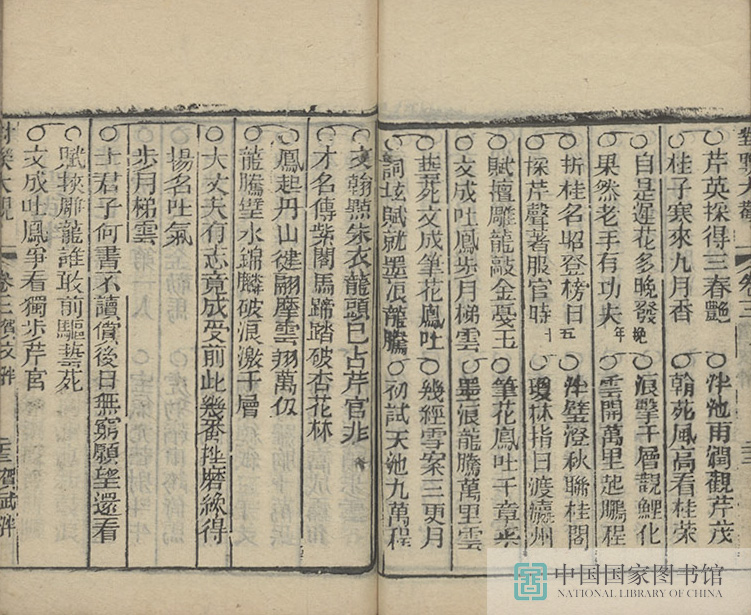 對聯大觀 卷三
○芹英採得三春艷 ○泮池雨潤觀芹茂
桂子寒來九月香 翰苑風高看桂榮
○自是蓮花多晚發晚 ○浪擊千層觀鯉化
果然老手有功夫年 雲開萬里起鵬程
○折桂名昭登榜日五 ○泮璧澄秋聯桂閣
採芹聲著服官時十 瓊林指日渡瀛州
○賦擅雕龍敲金戞玉 ○筆花鳳吐千章
文成吐鳳步月梯雲 墨浪龍騰萬里雲
○藝苑文成筆花鳳吐 ○幾經雪案三更月
詞賦就墨浪龍騰 初試天池九萬程
○文翰點朱衣龍頭已占芹官
才名傳紫閣馬蹄踏破杏花林
○鳳起丹山健翮摩雲翔萬仞
龍騰璧水錦鱗破浪激千層
○大丈夫有志竟成受前此幾番挫磨纔得
揚名吐氣
步月梯雲
○士君子何書不讀償後日無窮願望還看
○賦擬雕龍誰敢前驅藝死
○文成吐鳳爭看獨步芹官
對聯大觀 卷三 賀文泮 賀武泮
中国国家图书馆
NATIONAL LIBRARY OF CHINA